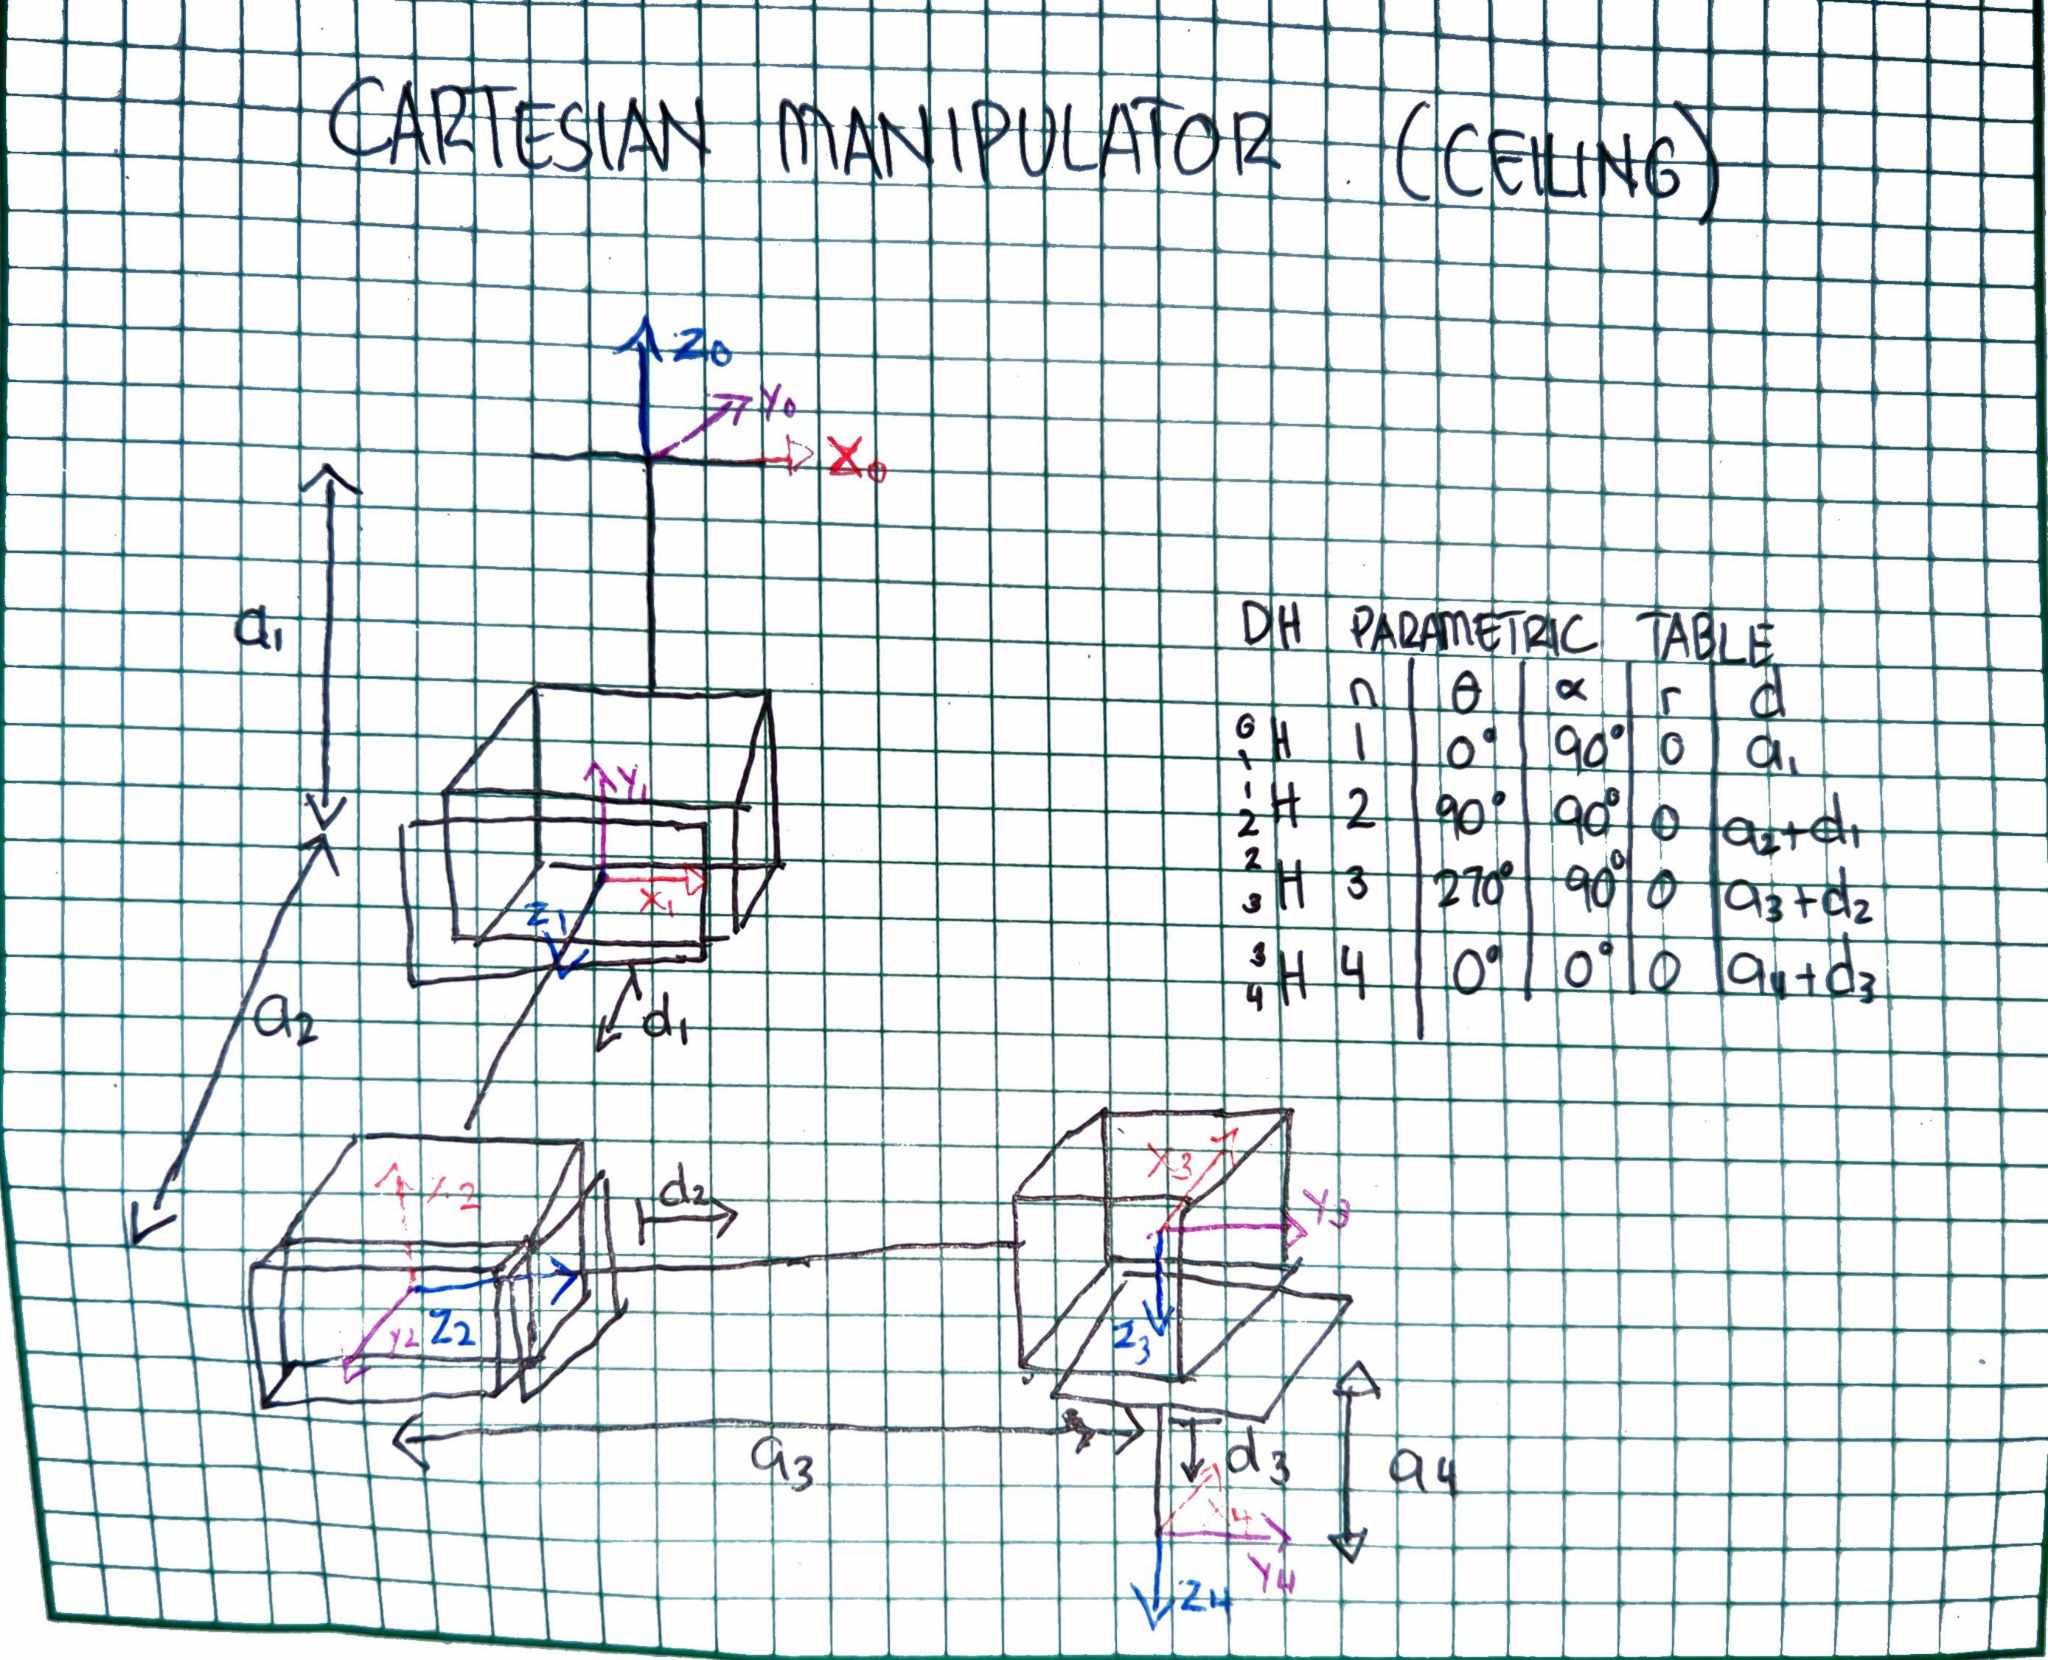 CARTESIAN MANIPULATOR (CEILING)
Z0
Y0
X0
a1
DH PARAMETRIC TABLE
n θ α r d
0 1 H 1 0° 90° 0 a1
1 2 H 2 90° 90° 0 a2+d1
2 3 H 3 270° 90° 0 a3+d2
3 4 H 4 0° 0° 0 a4+d3
Y1
X1
Z1
d1
a2
X2
d2
X3
Y3
Y2 Z2
Z3
a3
d3
a4
X4
Y4
Z4